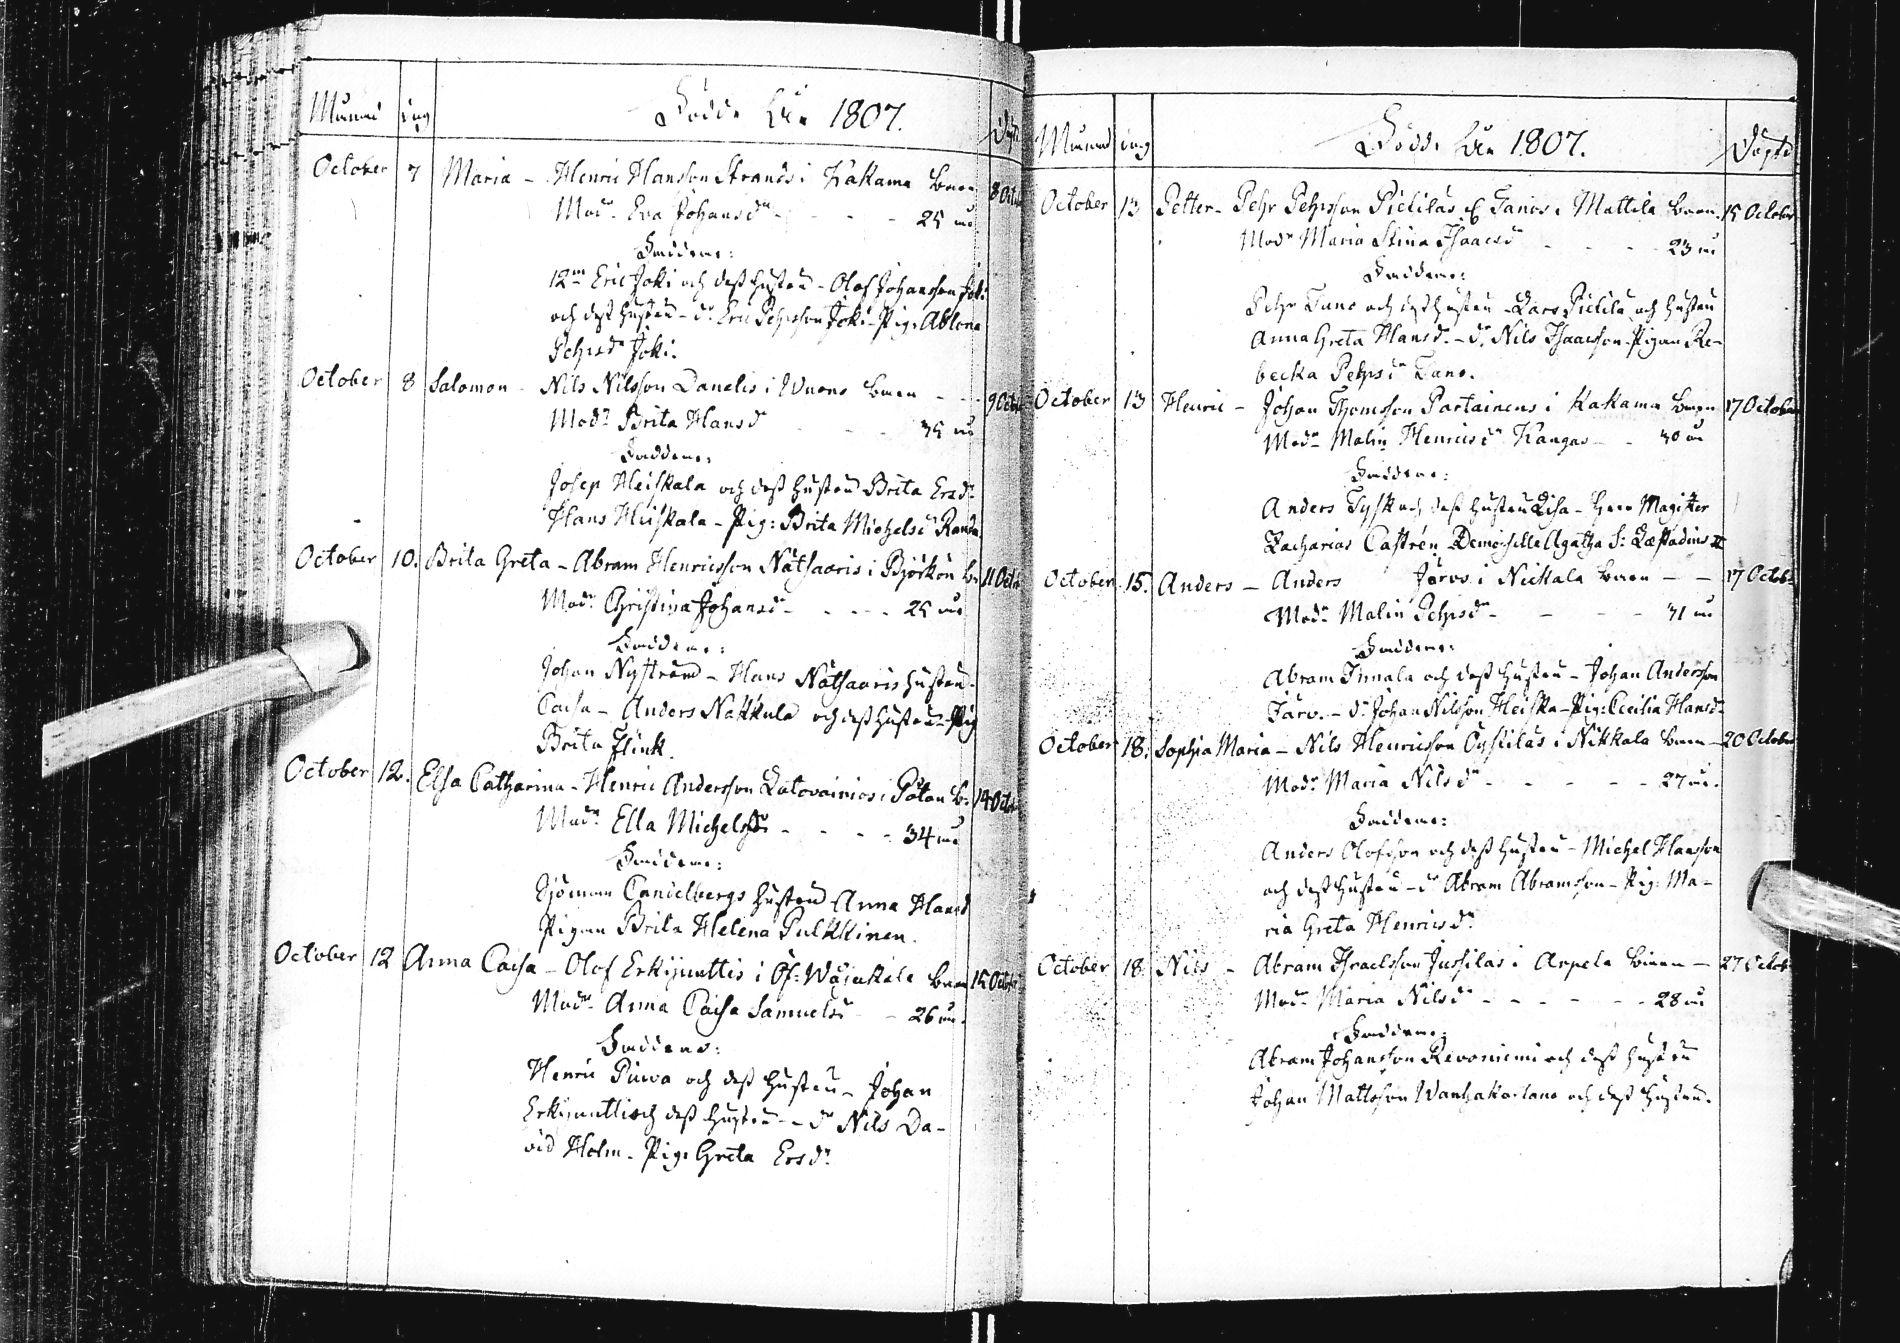 Månad dag Födde År 1807. Döpt
October 7 Maria - Henric Hansson Strands i Kakama barn 8 Octob
Modr Eva Johansdr - - - 25 år
Faddrar:
12m Eric Joki och dess hustru - Olof Johansson Joki
och dess hustru - dr. Eric Pehrsson Joki - Pig: Ablona
Pehrsdr Joki.
October 8 Salomon - Nils Nilsson Danelis i Wuono barn - - 9 Octob
Modr Brita Hansdr - - - 35 år
Faddrar:
Josep Heiskala och dess hustru Brita Ersdr
Hans Heiskala - Pig: Brita Michelsdr
October 10. Brita Greta - Abram Henricsson Nätsaaris i Björkön b: 11 Octob
Modr Christina Johansdr - - - - 25 år
Faddrar:
Johan Nyström - Hans Nätsaaris hustru
Caisa - Anders Nakkula och dess hustru - Pig
Brita Flink
October 12. Elsa Catharina - Henric Andersson Latovainios i b: 14 Octob
Modr Ella Michelsdr - - - - 34 år
Faddrar:
Sjöman Candelbergs hustru Anna Hansdr
Pigan Brita Helena Pulkkinen.
October 12 Anna Caisa - Olof Erkinmattis i Öf: Wojakala barn 15 Octobr
Modr Anna Caisa Samuelsdr - - 26 år.
Faddrar:
Henric och dess hustru - Johan
Erkinmatti och dess hustru - dr Nils Da-
vid Holm - Pig: Greta Ersdr
Månad dag Födde År 1807. Döpte
October 13 Petter - Pehr Pehrsson Pietilas Tanos i Mattila barn. 15 October
Modr Maria Stina Isaacsdr - - - - 23 år
Faddrar:
Pehr Tano och dess hustru - Lars Pietila och hustru
Anna Greta Hansdr. - dr. Nils Isaacsson - Pigan Re-
becka Pehrsdr Tano.
October 13 Henric - Johan Thomsson Portainens i Kakama barn 17 October
Modr Malin Henricsdr Kangas - - 30 år
Faddrar:
Anders Tysk och dess hustru Lisa - Herr Magister
Zacharias Castrén Demoiselle Agatha S: Læstadius
October 15. Anders - Anders Jarvo i Nickala barn - - 17 Octob
Modr Malin Pehrsdr - - - - 31 år
Faddrar:
Abram Innala och dess hustru - Johan Andersson
Jarvo. - dr Johan Nilsson Heiska - Pig: Cecilia Hansdr
October 18. Sophia Maria - Nils Henricsson Öystilas i Nikkala barn - 20 October
Modr Maria Nilsdr - - - - - 27 år.
Faddrar:
Anders Olofsson och dess hustru - Michel Hansson
och dess hustru - dr Abram Abramsson - Pig: Ma-
ria Greta Henricsdr
October 18. Nils - Abram Israelsson Jussilas i Arpela barn - 27 Octob
Modr Maria Nilsdr - - - - - - 28 år
Faddrar:
Abram Johansson Revoniemi och dess hustru
Johan Mattsson Wanhakartano och dess hustru.